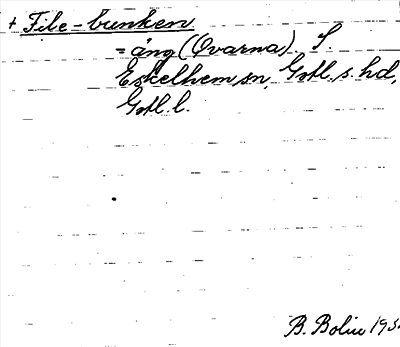 + File-bunken
= äng (Kvarna). S.
Eskelhem sn, Gotl. s. hd,
Gotl. l.
B. Bolin 193